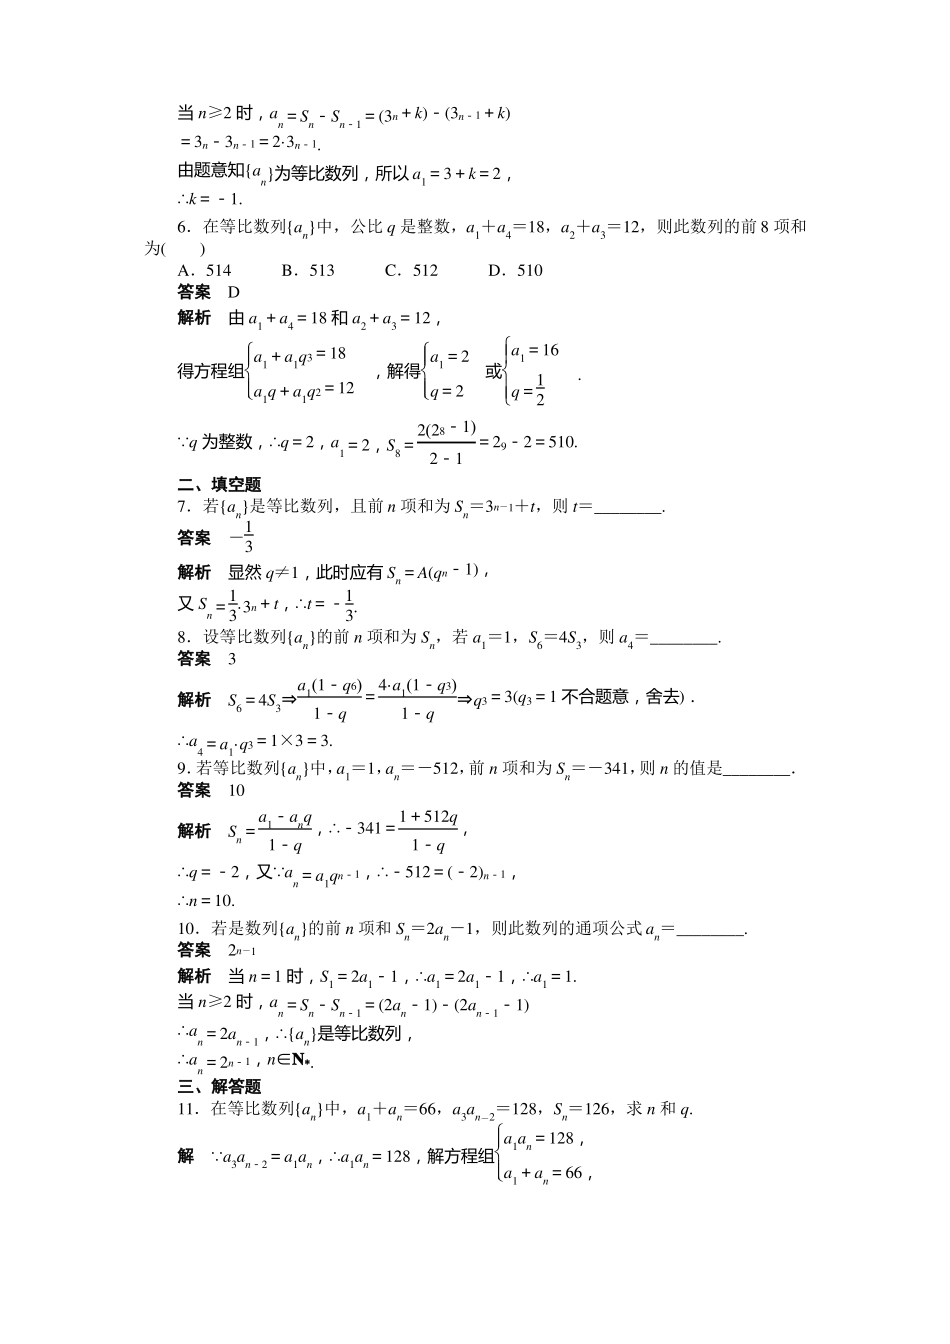 当 n≥2 时，an＝Sn－Sn－1＝(3n＋k)－(3n－1＋k)
＝3n－3n－1＝2·3n－1.
由题意知{an}为等比数列，所以 a1＝3＋k＝2，
∴k＝－1.
6．在等比数列{an}中，公比 q 是整数，a1＋a4＝18，a2＋a3＝12，则此数列的前 8 项和
为(　　)
A．514　　　B．513　　　C．512　　　D．510
答案　D
解析　由 a1＋a4＝18 和 a2＋a3＝12，
得方程组{a1＋a1q3＝18 a1q＋a1q2＝12，解得{a1＝2 q＝2 或{a1＝16 q＝1/2.
∵q 为整数，∴q＝2，a1＝2，S8＝2(28－1)/2－1＝29－2＝510.
二、填空题
7．若{an}是等比数列，且前 n 项和为 Sn＝3n－1＋t，则 t＝________.
答案　－1/3
解析　显然 q≠1，此时应有 Sn＝A(qn－1)，
又 Sn＝1/3·3n＋t，∴t＝－1/3.
8．设等比数列{an}的前 n 项和为 Sn，若 a1＝1，S6＝4S3，则 a4＝________.
答案　3
解析　S6＝4S3⇒a1(1－q6)/1－q＝4·a1(1－q3)/1－q⇒q3＝3(q3＝1 不合题意，舍去)．
∴a4＝a1·q3＝1×3＝3.
9．若等比数列{an}中，a1＝1，an＝－512，前 n 项和为 Sn＝－341，则 n 的值是________．
答案　10
解析　Sn＝a1－anq/1－q，∴－341＝1＋512q/1－q，
∴q＝－2，又∵an＝a1qn－1，∴－512＝(－2)n－1，
∴n＝10.
10．若是数列{an}的前 n 项和 Sn＝2an－1，则此数列的通项公式 an＝________.
答案　2n－1
解析　当 n＝1 时，S1＝2a1－1，∴a1＝2a1－1，∴a1＝1.
当 n≥2 时，an＝Sn－Sn－1＝(2an－1)－(2an－1－1)
∴an＝2an－1，∴{an}是等比数列，
∴an＝2n－1，n∈N*.
三、解答题
11．在等比数列{an}中，a1＋an＝66，a3an－2＝128，Sn＝126，求 n 和 q.
解　∵a3an－2＝a1an，∴a1an＝128，解方程组{a1an＝128， a1＋an＝66，